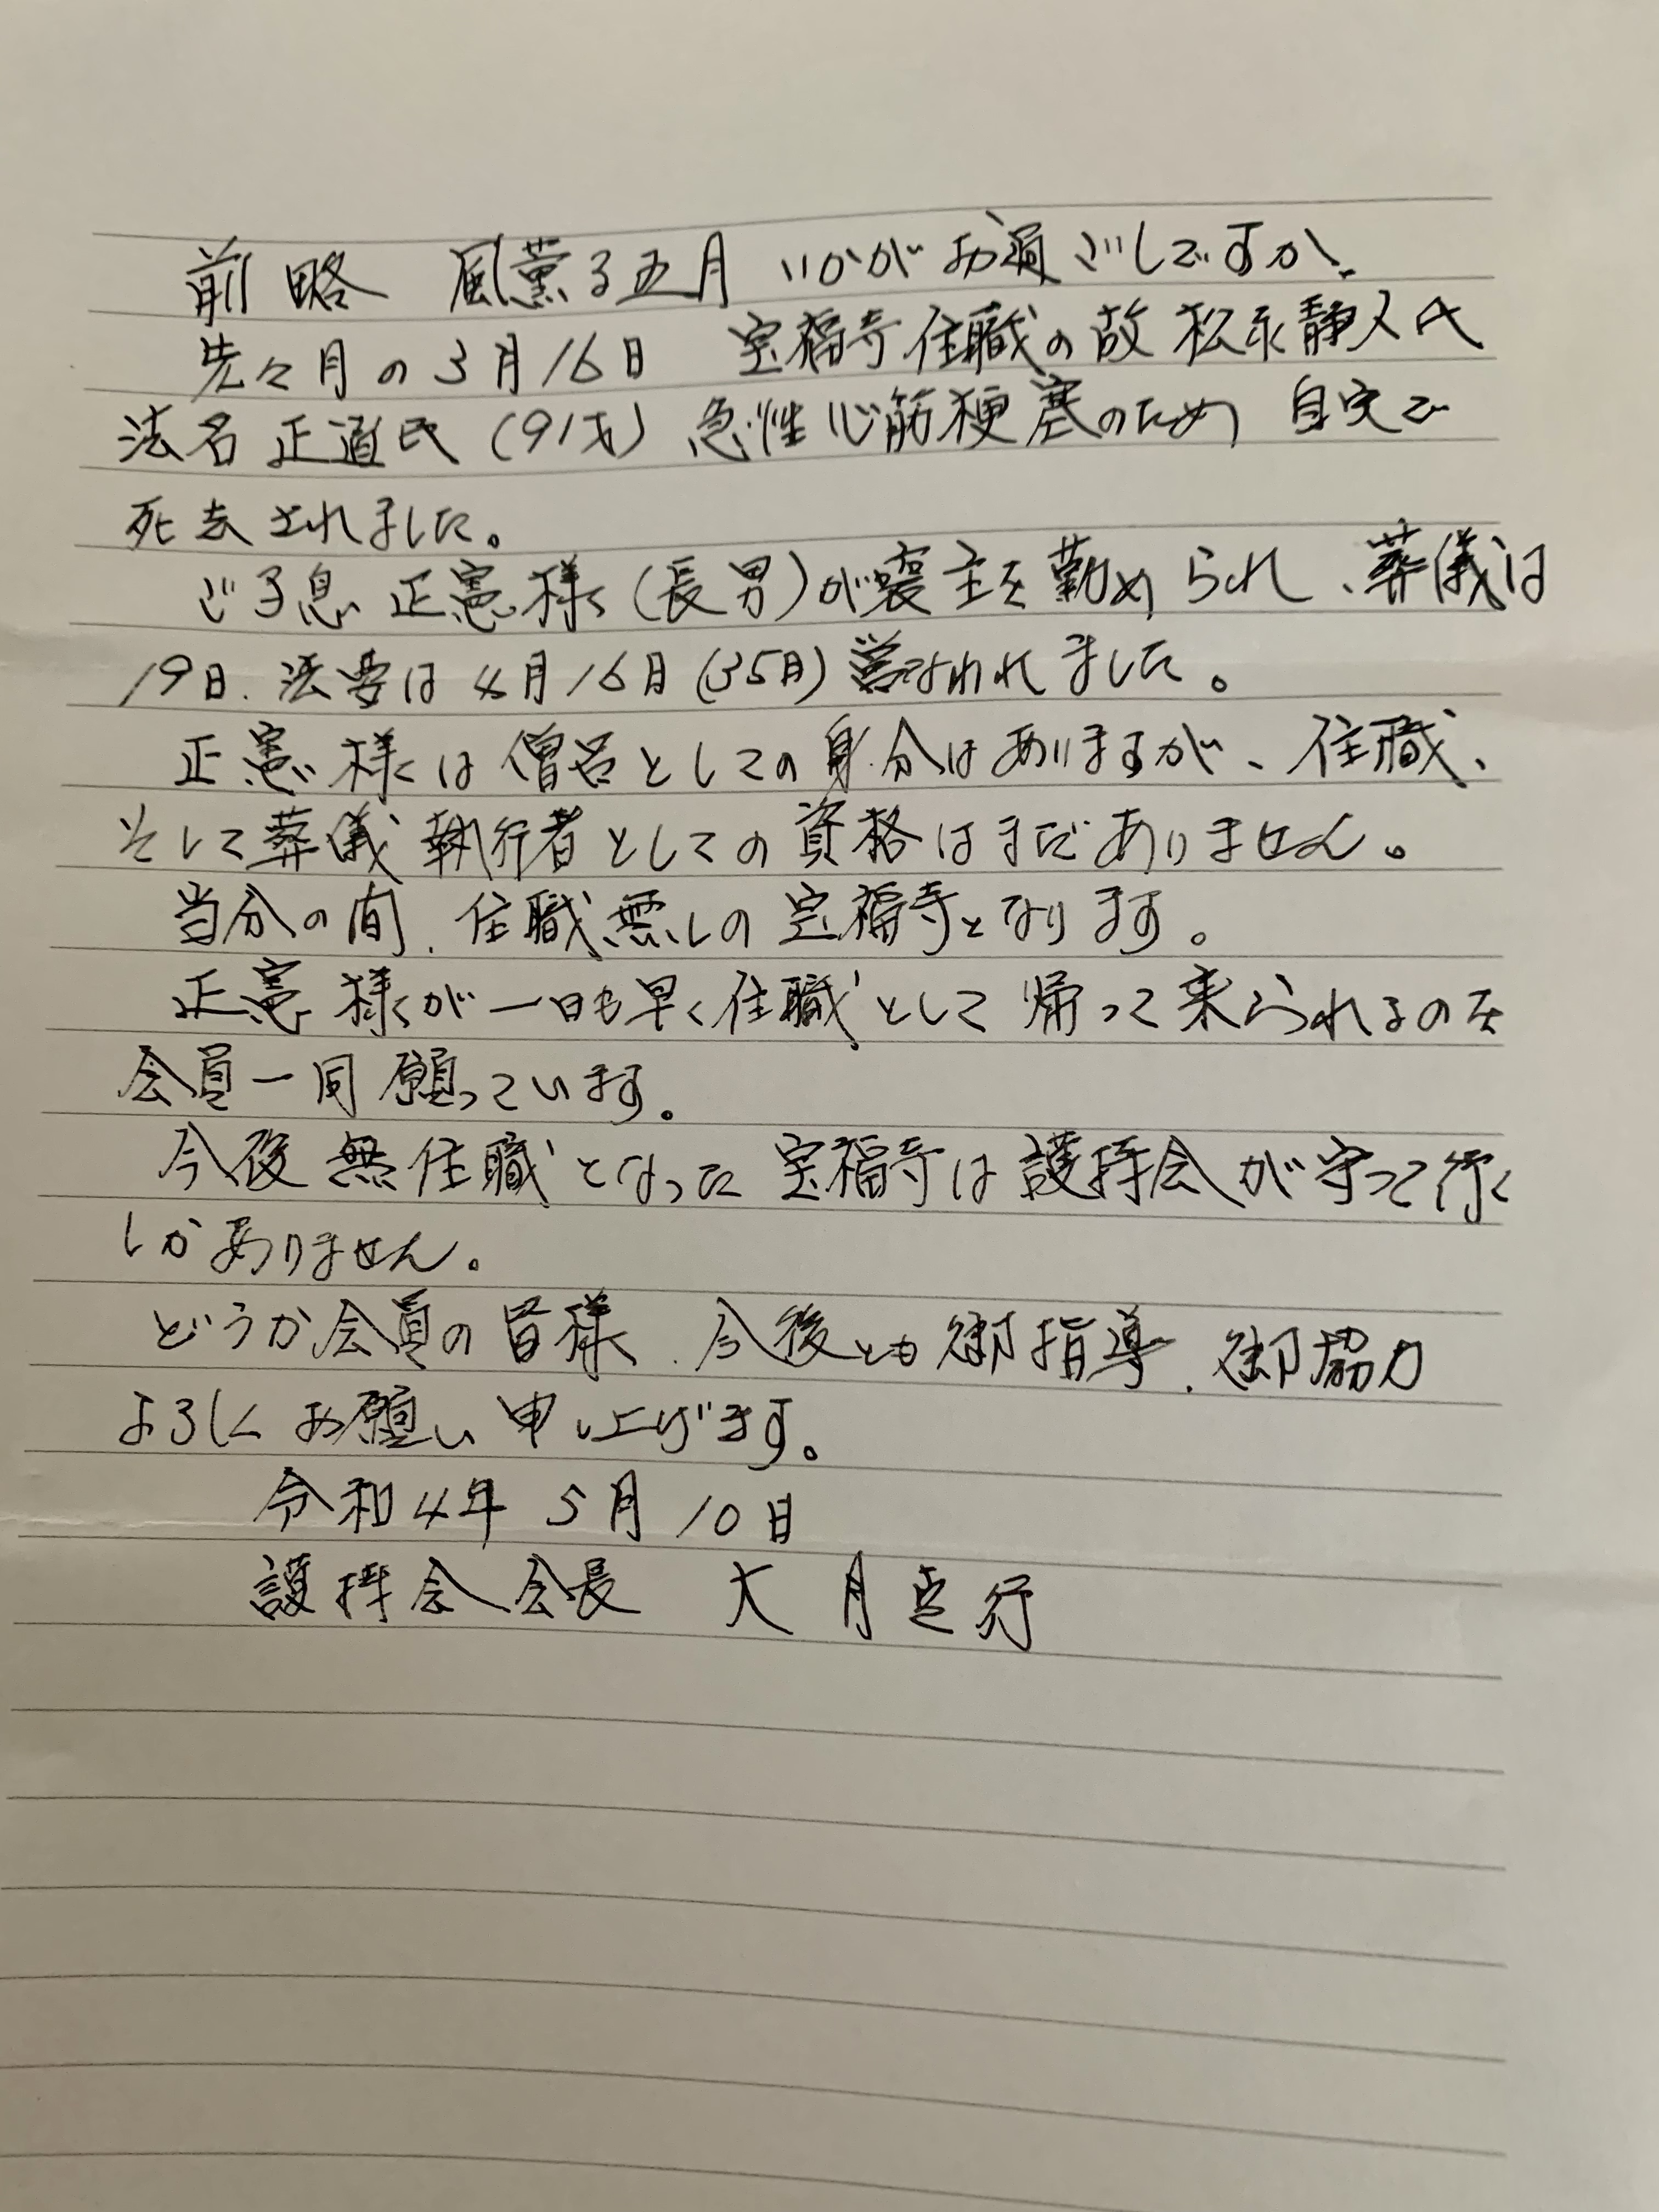 前略 風薫る五月 いかがお過ごしですか.
先々月の3月16日 宝福寺住職の故 松永静人氏
法名 正道氏 (91才) 急性心筋梗塞のため 自宅で
死去されました。
ご子息 正憲様 (長男) が喪主を勤められ、葬儀は
19日、法要は4月16日 (35日) 営なわれました。
正憲様は僧呂としての身分はありますが、住職、
そして葬儀執行者としての資格はまだありません。
当分の間、住職無しの宝福寺となります。
正憲様が一日も早く住職として帰って来られるのを
会員一同願っています。
今後無住職となった宝福寺は護持会が守って行く
しかありません。
どうか会員の皆様、今後とも御指導、御協力
よろしくお願い申し上げます。
令和4年 5月10日
護持会会長 大月 行